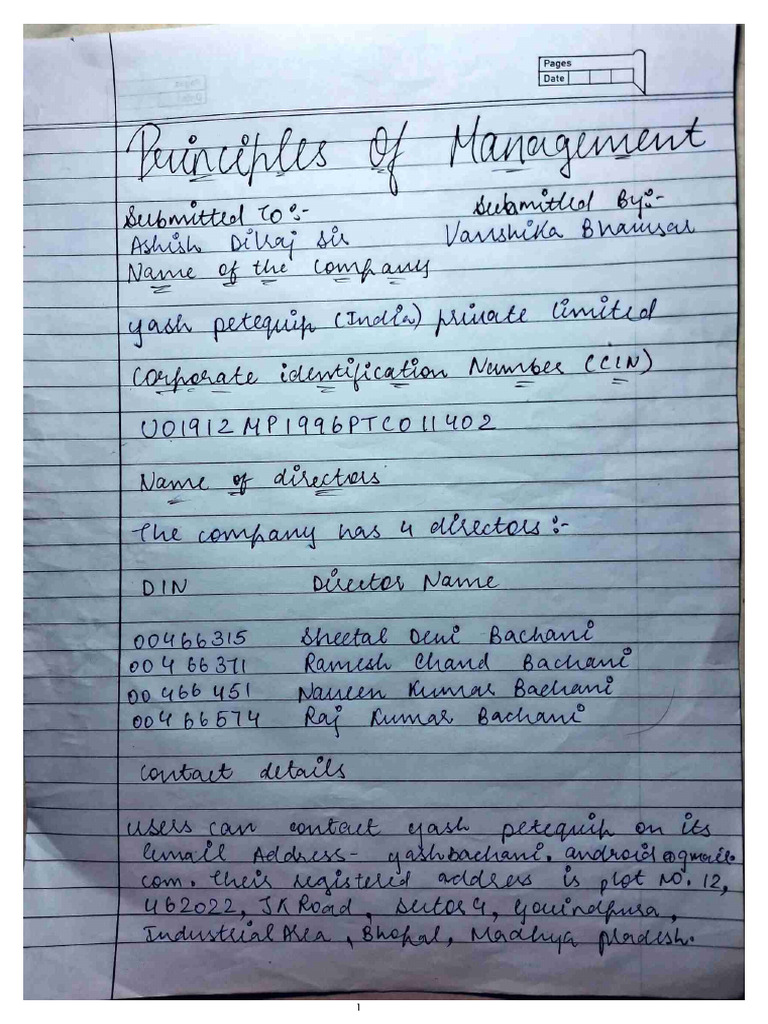 Pages
Date
Principles Of Management
Submitted To:- Submitted By:-
Ashish Dilraj Sir Vanshika Bhawsar
Name of the company
yash petequip (India) private limited
Corporate identification Number (CIN)
U01912MP1996PTC011402
Name of directors
The company has 4 directors:-
DIN Director Name
00466315 Sheetal Devi Bachani
00466371 Ramesh Chand Bachani
00466451 Naveen Kumar Bachani
00466574 Raj Kumar Bachani
Contact details
users can contact yash petequip on its
Email Address- yashbachani.android@gmail.
com. Their registered address is plot No. 12,
462022, JK Road, Sector 4, Govindpura,
Industrial Area, Bhopal, Madhya pradesh.
1